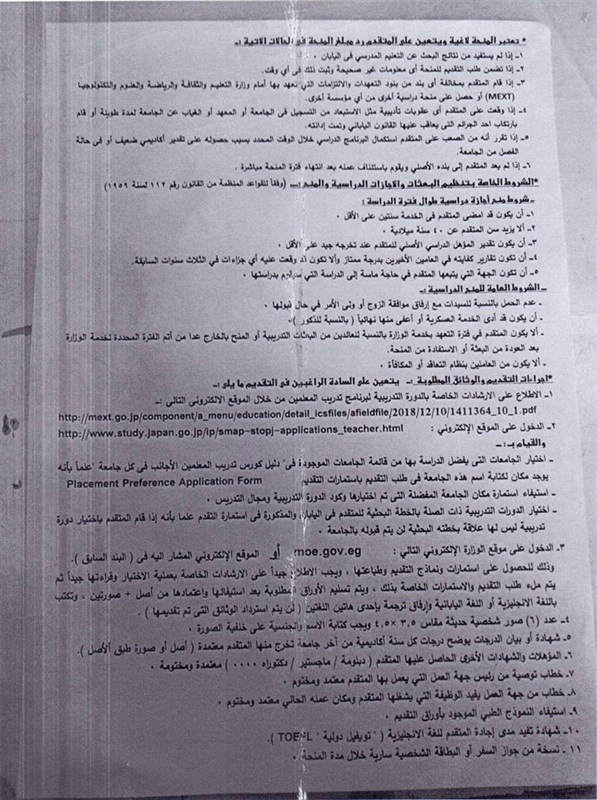 * تعتبر المنحة لاغية ويتعين على المتقدم رد مبلغ المنحة فى الحالات الاتية :ـ
١- إذا لم يستفيد من نتائج البحث عن التعليم المدرسي فى اليابان ٠
٢- إذا تضمن طلب التقديم للمنحة أى معلومات غير صحيحة وثبت ذلك في أي وقت.
٣- إذا قام المتقدم بمخالفة أى بند من بنود التعهدات والالتزامات التي تعهد بها أمام وزارة التعليم والثقافة والرياضة والعلوم والتكنولوجيا
(MEXT) أو حصل على منحة دراسية أخرى من أي مؤسسة أخرى.
٤- إذا وقعت على المتقدم أى عقوبات تأديبية مثل الاستبعاد من التسجيل فى الجامعة أو المعهد أو الغياب عن الجامعة لمدة طويلة أو قام
بارتكاب احد الجرائم التى يعاقب عليها القانون الياباني وتمت إدانته.
٥- إذا تقرر أنه من الصعب على المتقدم استكمال البرنامج الدراسي خلال الوقت المحدد بسبب حصوله على تقدير أكاديمي ضعيف أو فى حالة
الفصل من الجامعة.
٦- إذا لم يعد المتقدم إلى بلده الأصلي ويقوم باستئناف عمله بعد انتهاء فترة المنحة مباشرة .
*الشروط الخاصة بتنظيم البعثات والاجازات الدراسية والمنح :ـ (وفقاً للقواعد المنظمة من القانون رقم ١١٢ لسنة ١٩٥٩)
ـ شروط منح أجازة دراسية طوال فترة الدراسة :
١- أن يكون قد امضى المتقدم فى الخدمة سنتين على الأقل ٠
٢- ألا يزيد سن المتقدم عن ٤٠ سنة ميلادية ٠
٣- أن يكون تقدير المؤهل الدراسي الأصلي للمتقدم عند تخرجه جيد على الأقل ٠
٤- أن تكون تقارير كفايته في العامين الأخيرين بدرجة ممتاز وألا تكون قد وقعت عليه أي جزاءات في الثلاث سنوات السابقة.
٥- أن تكون الجهة التي يتبعها المتقدم في حاجة ماسة إلى الدراسة التي سيقوم بدراستها ٠
ـ الشروط العامة للمنح الدراسية :ـ
- عدم الحمل بالنسبة للسيدات مع إرفاق موافقة الزوج أو ولى الأمر في حال قبولها ٠
- أن يكون قد أدى الخدمة العسكرية أو أعفى منها نهائياً ( بالنسبة للذكور )٠
- ألا يكون المتقدم في فترة التعهد بخدمة الوزارة بالنسبة للعائدين من البعثات التدريبية أو المنح بالخارج عدا من أتم الفترة المحددة لخدمة الوزارة
بعد العودة من البعثة أو الاستفادة من المنحة.
- ألا يكون من العاملين بنظام التعاقد أو المكافأة ٠
*اجراءات التقديم والوثائق المطلوبة :ـ يتعين على السادة الراغبين فى التقديم ما يلى :ـ
١- الاطلاع على الارشادات الخاصة بالدورة التدريبية لبرنامج تدريب المعلمين من خلال الموقع الالكترونى التالى :ـ
http://mext.go.jp/component/a_menu/education/detail_icsfiles/afieldfile/2018/12/10/1411364_10_1.pdf
٢- الدخول على الموقع الإلكتروني : http://www.study.japan.go.jp/ip/smap-stopj-applications_teacher.html
والقيام بـ :ـ
- اختيار الجامعات التى يفضل الدراسة بها من قائمة الجامعات الموجودة فى" دليل كورس تدريب المعلمين الأجانب فى كل جامعة "علماً بأنه
يوجد مكان لكتابة اسم هذه الجامعة فى طلب التقديم باستمارات التقديم Placement Preference Application Form
- استيفاء استمارة مكان الجامعة المفضلة التى تم اختيارها وكود الدورة التدريبية ومجال التدريس ٠
- اختيار الدورات التدريبية ذات الصلة بالخطة البحثية للمتقدم فى اليابان والمذكورة فى استمارة التقدم علماً بأنه إذا قام المتقدم باختيار دورة
تدريبية ليس لها علاقة بخطته البحثية لن يتم قبوله بالجامعة ٠
٣- الدخول على موقع الوزارة الإلكتروني التالى : moe.gov.eg أو الموقع الإلكتروني المشار اليه فى ( البند السابق ).
وذلك للحصول على استمارات ونماذج التقديم وطباعتها ، ويجب الاطلاع جيداً على الارشادات الخاصة بعملية الاختيار وقراءتها جيداً ثم
يتم ملء طلب التقديم والاستمارات الخاصة بذلك ، ويتم تسليم الأوراق المطلوبة بعد استيفائها واعتمادها من أصل + صورتين ، وتكتب
باللغة الانجليزية أو اللغة اليابانية وإرفاق ترجمة بإحدى هاتين اللغتين ( لن يتم استرداد الوثائق التى تم تقديمها ) .
٤- عدد (٦) صور شخصية حديثة مقاس ٣.٥ ×٤,٥ ويجب كتابة الاسم والجنسية على خلفية الصورة ٠
٥- شهادة أو بيان الدرجات يوضح درجات كل سنة أكاديمية من آخر جامعة تخرج منها المتقدم معتمدة ( أصل أو صورة طبق الأصل ).
٦- المؤهلات والشهادات الأخرى الحاصل عليها المتقدم ( دبلومة / ماجستير / دكتوراه ٠٠٠٠ ) معتمدة ومختومة ٠
٧- خطاب توصية من رئيس جهة العمل التي يعمل بها المتقدم معتمد ومختوم ٠
٨- خطاب من جهة العمل يفيد الوظيفة التي يشغلها المتقدم ومكان عمله الحالي معتمد ومختوم ٠
٩- استيفاء النموذج الطبي الموجود بأوراق التقديم ٠
١٠- شهادة تفيد مدى إجادة المتقدم للغة الانجليزية ( " تويفيل دولية " TOEFL ).
١١- نسخة من جواز السفر أو البطاقة الشخصية سارية خلال مدة المنحة ٠